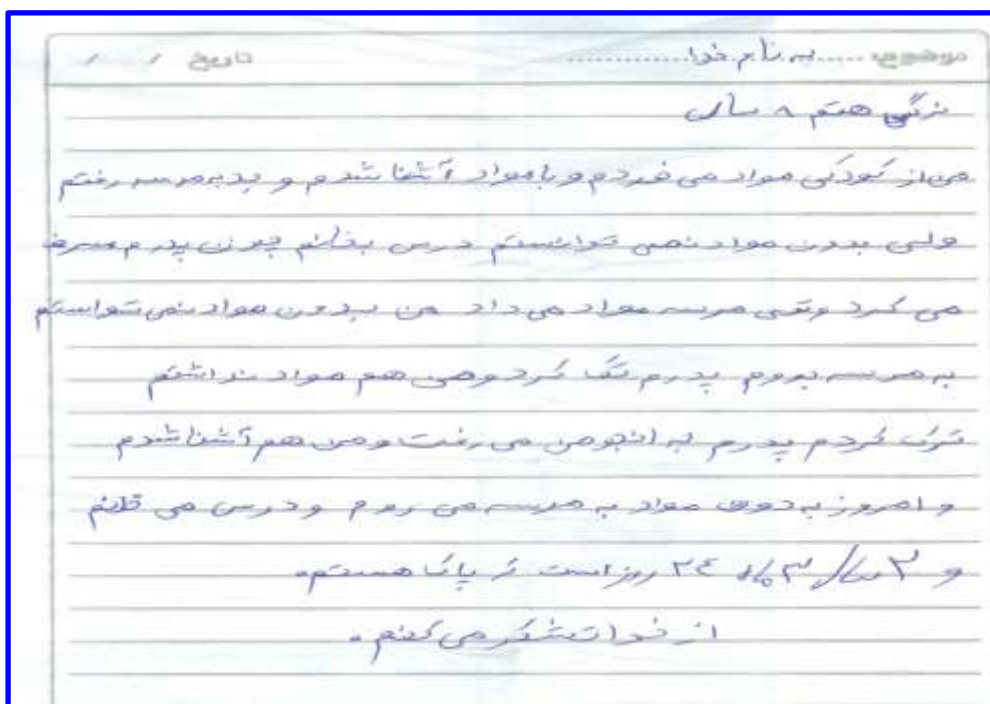 موضوع: به نام خدا تاریخ / /
هستم ۸ ساله
من از کودکی مواد می خوردم و با مواد آشنا شدم و به مدرسه رفتم
ولی بدون مواد نمی توانستم درس بخانم چون پدرم مصرف
می کرد وقتی مرسه مواد می داد من بدون مواد نمی تواستم
به مرسه بروم پدرم ترک کرد و من هم مواد نداشتم
ترک کردم پدرم به انجومن می رفت و من هم آشنا شدم
و امروز به دون مواد به مدرسه می روم و درس می خانم
و ۳ سال ۳ ماه ۲٤ روز است ک پاک هستم.
از خدا تشکر می کنم.